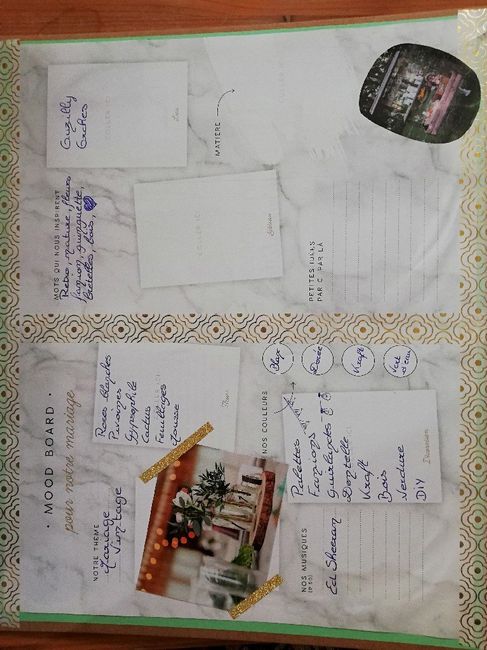 • MOOD BOARD •
pour notre mariage
NOTRE THÈME
Mariage
Vintage
Roses blanches
Pivoines
Gypsophile
Cactus
Feuillages
Mousse
Fleurs
NOS COULEURS
Blanc
Dorée
Kraft
Vert d'eau
NOS MUSIQUES
(P.50)
Ed Sheeran
Palettes
Fanions
Guirlandes
Dentelle
Kraft
Bois
Verdure
DIY
Décoration
MOTS QUI NOUS INSPIRENT
Rétro, nature, fleurs
fanion, guinguette,
bretelles, bois,
COLLER ICI
Lieu
MATIÈRE
COLLER ICI
PETITES IDÉES
PAR CI PAR LÀ